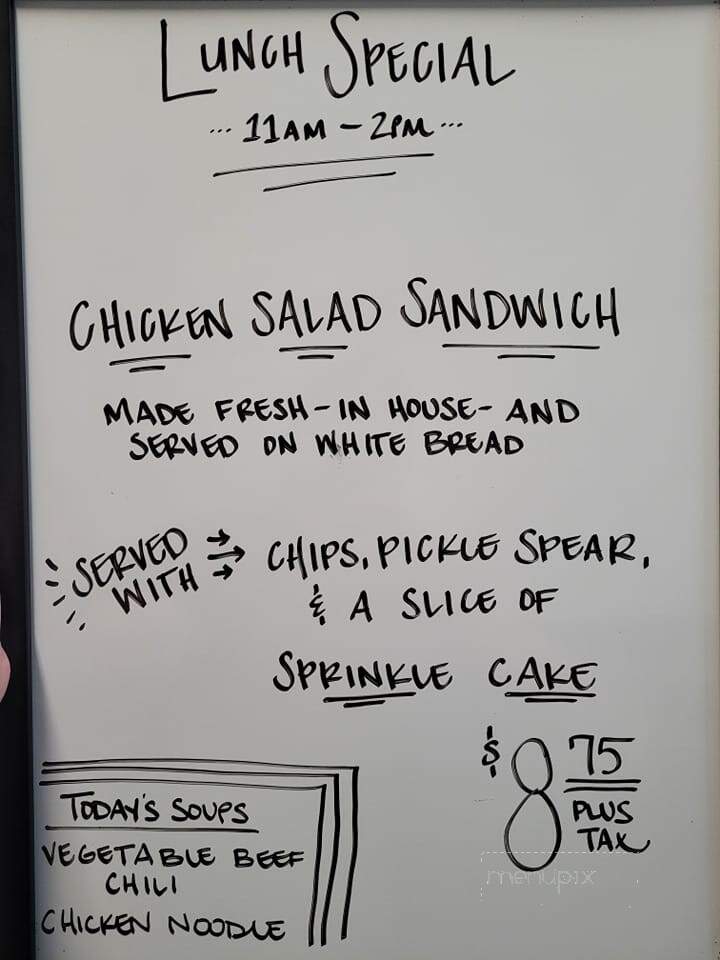 LUNCH SPECIAL
... 11AM - 2PM ...
CHICKEN SALAD SANDWICH
MADE FRESH - IN HOUSE - AND
SERVED ON WHITE BREAD
SERVED
WITH
CHIPS, PICKLE SPEAR,
& A SLICE OF
SPRINKLE CAKE
$8 75
PLUS
TAX
TODAY'S SOUPS
VEGETABLE BEEF
CHILI
CHICKEN NOODLE
menupix